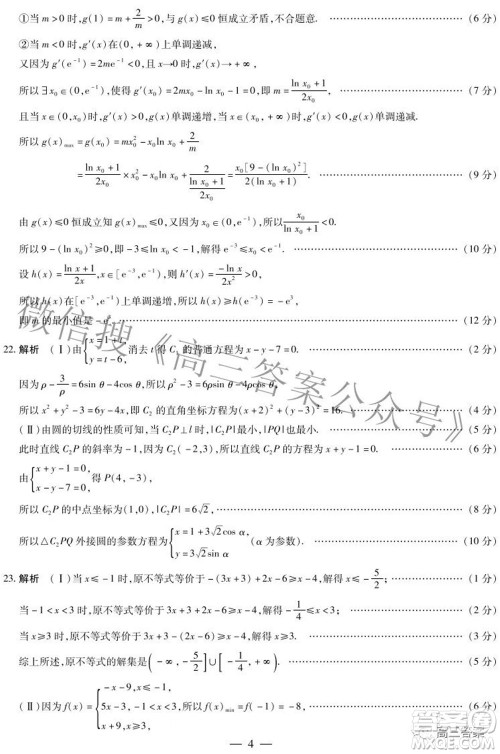 ①当 m>0 时,g(1)=m+2/m>0,与 g(x)≤0 恒成立矛盾,不合题意. (6 分)
②当 m<0 时,g′(x)在(0,+∞)上单调递减,
又因为 g′(e⁻¹)=2me⁻¹<0,且 x→0 时,g′(x)→+∞,
所以∃x₀∈(0,e⁻¹),使得 g′(x₀)=2mx₀-ln x₀-1=0,即 m=(ln x₀+1)/(2x₀), (7 分)
且当 x∈(0,x₀)时,g′(x)>0,g(x)单调递增,当 x∈(x₀,+∞)时,g′(x)<0,g(x)单调递减.
所以 g(x)max=g(x₀)=mx₀²-x₀ln x₀+2/m
=(ln x₀+1)/(2x₀)×x₀²-x₀ln x₀+4x₀/(ln x₀+1)=x₀[9-(ln x₀)²]/(2(ln x₀+1)). (9 分)
由 g(x)≤0 恒成立知 g(x)max≤0,又因为 x₀∈(0,e⁻¹),所以 x₀/(ln x₀+1)<0.
所以 9-(ln x₀)²≥0,即-3≤ln x₀<-1,解得 e⁻³≤x₀<e⁻¹. (10 分)
设 h(x)=(ln x+1)/(2x),x∈[e⁻³,e⁻¹),则 h′(x)=(-ln x)/(2x²)>0,
所以 h(x)在[e⁻³,e⁻¹)上单调递增,所以 h(x)≥h(e⁻³)=-e³,
即 m 的最小值是-e³. (12 分)
22. 解析 (Ⅰ)由{x=1+t, y=t-6, 消去 t 得 C₁ 的普通方程为 x-y-7=0. (2 分)
因为 ρ-3/ρ=6sin θ-4cos θ,所以 ρ²-3=6ρsin θ-4ρcos θ,
所以 x²+y²-3=6y-4x,即 C₂ 的直角坐标方程为(x+2)²+(y-3)²=16. (4 分)
(Ⅱ)由圆的切线的性质可知,当 C₂P⊥l 时,|C₂P|最小,|PQ|也最小.
此时直线 C₂P 的斜率为-1,因为 C₂(-2,3),所以直线 C₂P 的方程为 x+y-1=0. (6 分)
由{x+y-1=0, x-y-7=0, 得 P(4,-3),
所以 C₂P 的中点坐标为(1,0),|C₂P|=6√2, (8 分)
所以△C₂PQ 外接圆的参数方程为{x=1+3√2cos α, y=3√2sin α (α 为参数). (10 分)
23. 解析 (Ⅰ)当 x≤-1 时,原不等式等价于-(3x+3)+2x-6≥x-4,解得 x≤-5/2; (1 分)
当-1<x<3 时,原不等式等价于 3x+3+2x-6≥x-4,解得-1/4≤x<3; (2 分)
当 x≥3 时,原不等式等价于 3x+3-2x+6≥x-4,解得 x≥3. (3 分)
综上所述,原不等式的解集是(-∞,-5/2]∪[-1/4,+∞). (4 分)
(Ⅱ)因为 f(x)={-x-9,x≤-1, 5x-3,-1<x<3, x+9,x≥3, 所以 f(x)min=f(-1)=-8, (6 分)
— 4 —
微信搜《高三答案公众号》